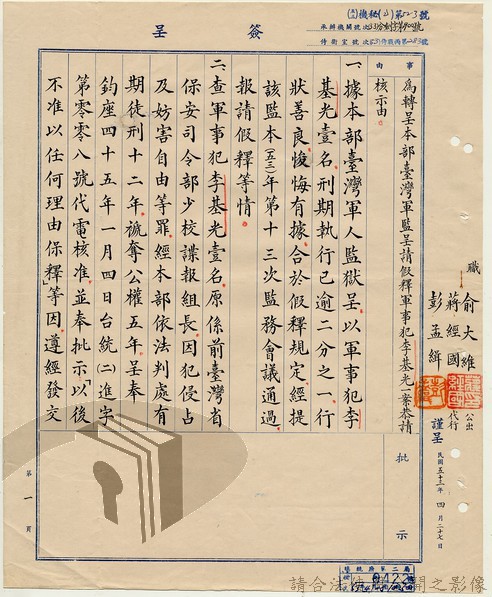 簽呈
事由
為轉呈本部臺灣軍監呈請假釋軍事犯李基光一案恭請
核示由
一、據本部臺灣軍人監獄呈以軍事犯李
基光壹名，刑期執行已逾二分之一，行
狀善良，悛悔有據，合於假釋規定，經提
該監本(五三)年第十三次監務會議通過，
報請假釋等情。
二、查軍事犯李基光壹名，原係前臺灣省
保安司令部少校諜報組長，因犯侵占
及妨害自由等罪，經本部依法判處有
期徒刑十二年，褫奪公權五年，呈奉
鈞座四十五年一月四日台統(二)進字
第零零八號代電核准，並奉批示「以後
不准以任何理由保釋」等因，遵經發交
職
俞大維 公出
蔣經國 代行
彭孟緝
謹呈
民國五十三年四月二十七日
批示
第一頁